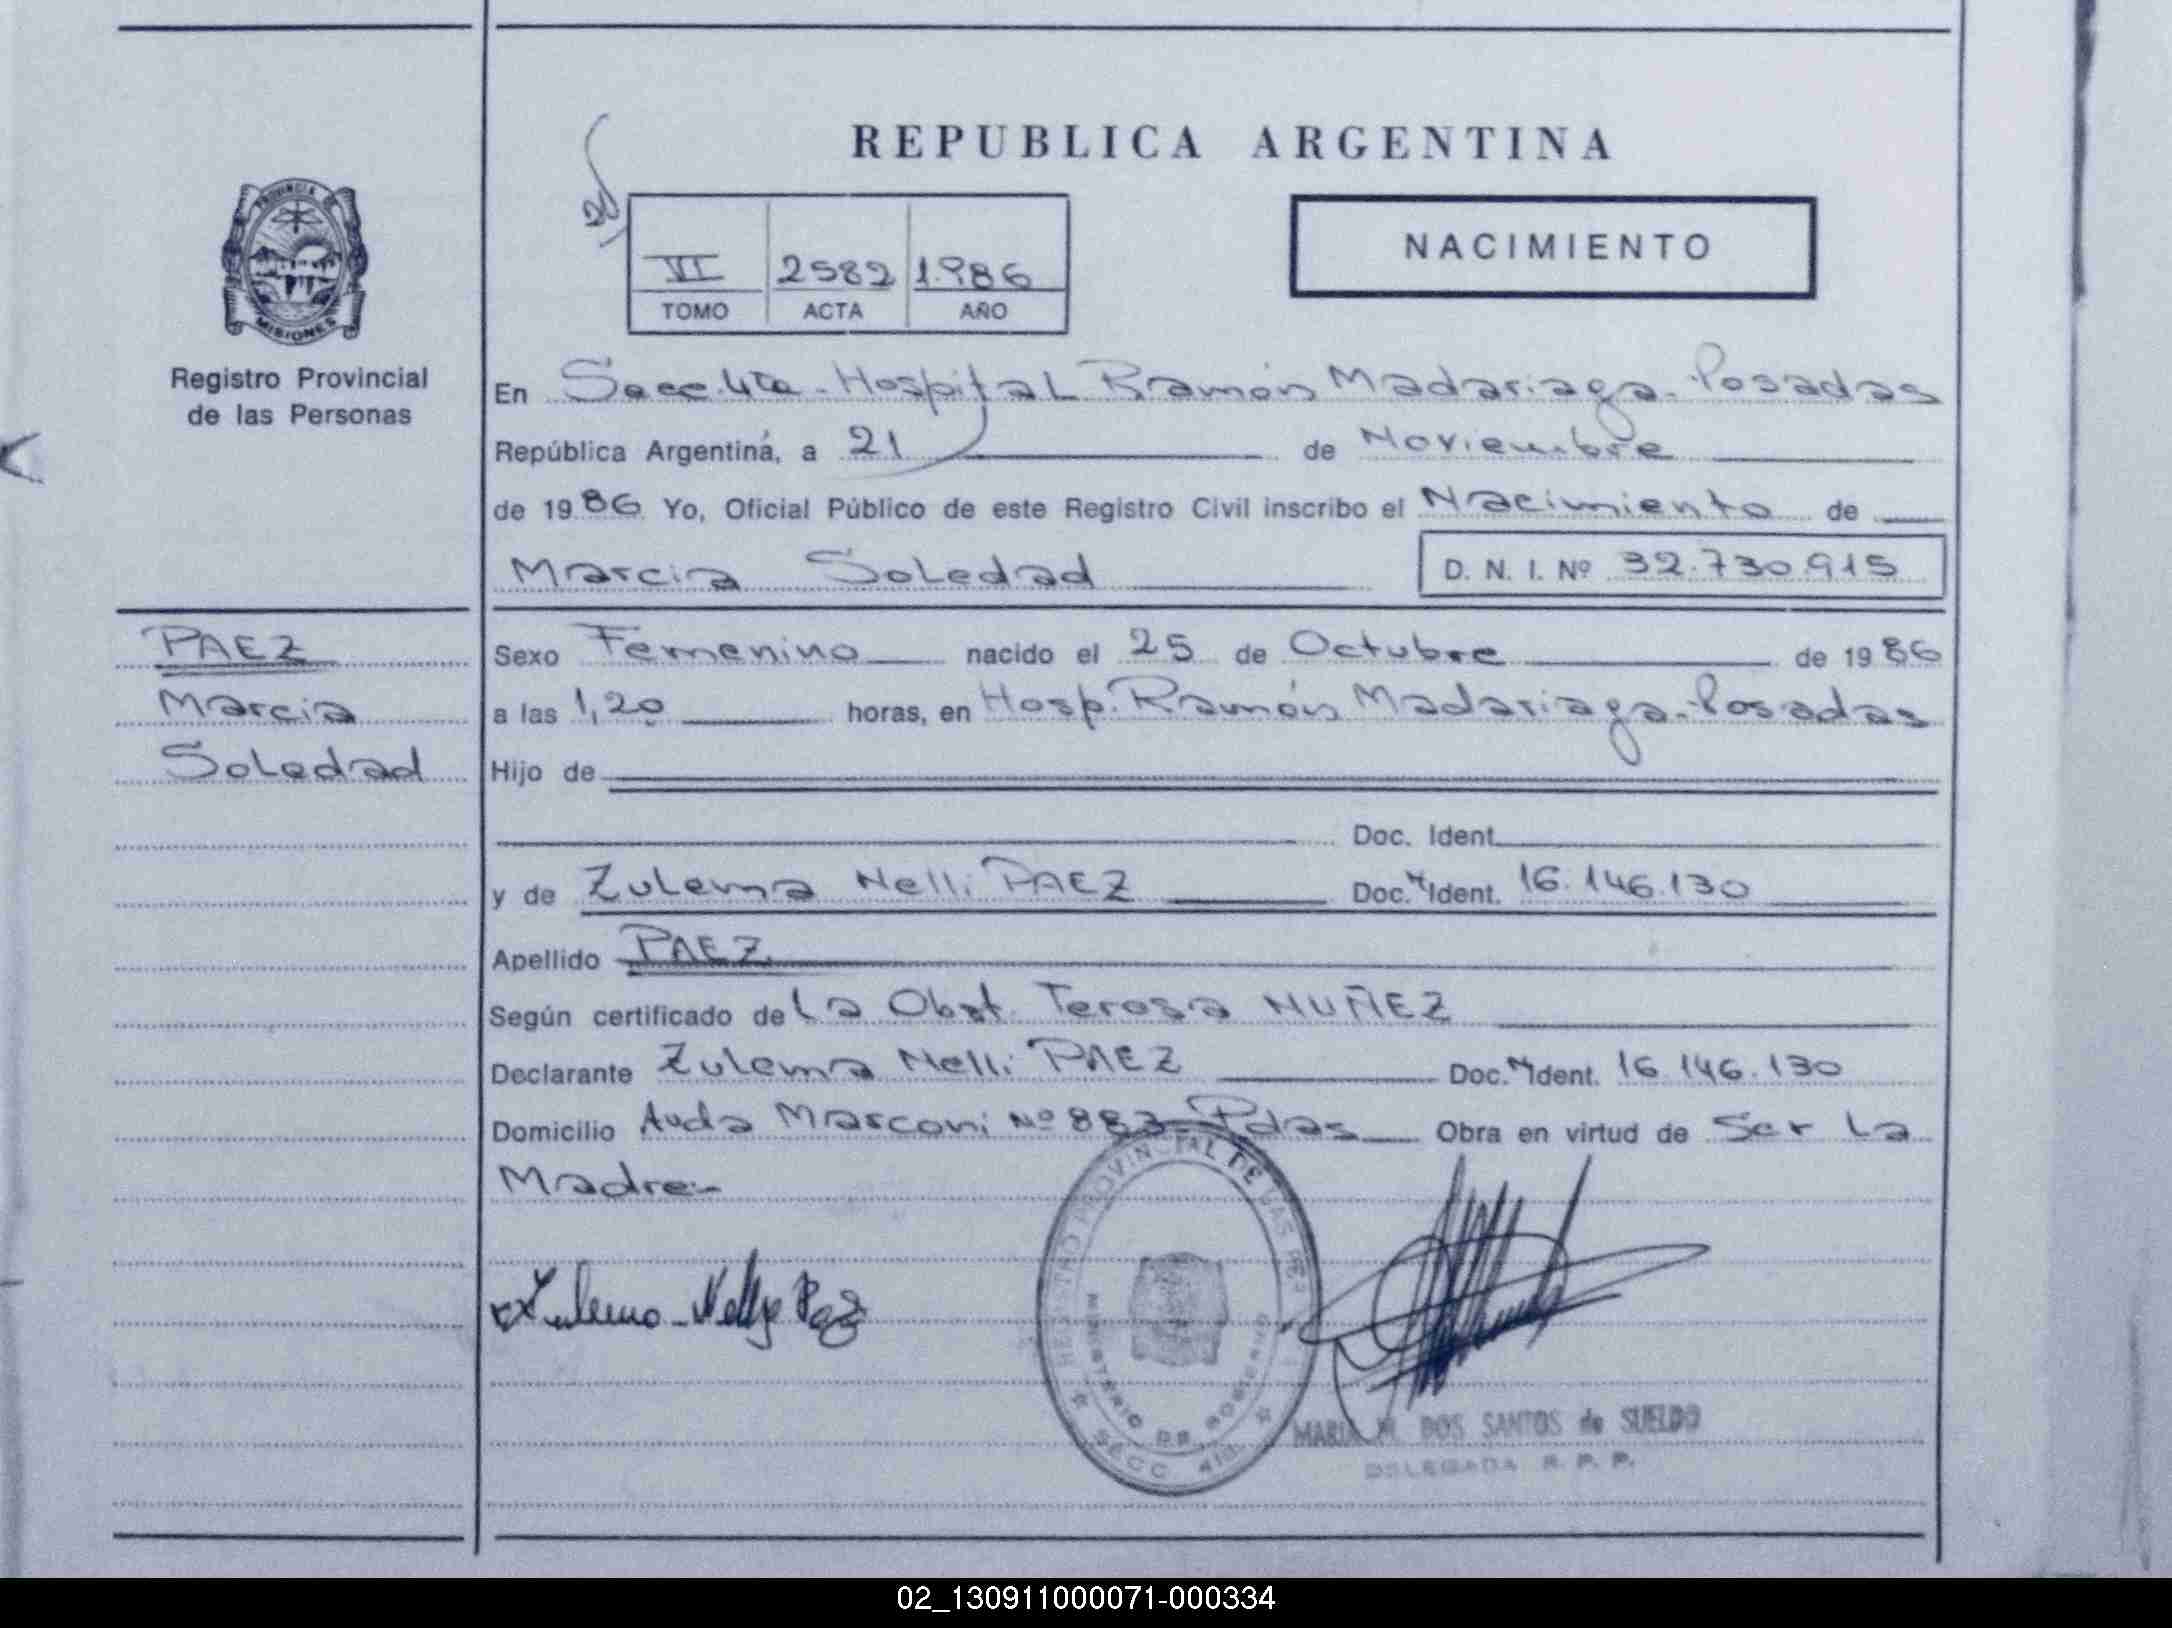 REPUBLICA ARGENTINA
PROVINCIA DE
MISIONES
Registro Provincial
de las Personas
VI 2582 1.986
TOMO ACTA AÑO
NACIMIENTO
En Secc. 4ta - Hospital Ramón Madariaga - Posadas
República Argentina, a 21 de Noviembre
de 1986 Yo, Oficial Público de este Registro Civil inscribo el Nacimiento de
Marcia Soledad D. N. I. Nº 32.730.915
PAEZ
Marcia
Soledad
Sexo Femenino nacido el 25 de Octubre de 1986
a las 1,20 horas, en Hosp. Ramón Madariaga - Posadas
Hijo de
Doc. Ident.
y de Zulema Nelli PAEZ Doc. Ident. 16.146.130
Apellido PAEZ
Según certificado de La Obst. Teresa NUÑEZ
Declarante Zulema Nelli PAEZ Doc. Ident. 16.146.130
Domicilio Avda Marconi Nº 883 - Pdas Obra en virtud de Ser La
Madre.-
Zulema Nelly Paez
REGISTRO PROVINCIAL DE LAS PER
MINISTERIO DE GOBIERNO
SECC. 4ta.
MARIA M. DOS SANTOS de SUELDO
DELEGADA R. P. P.
02_130911000071-000334